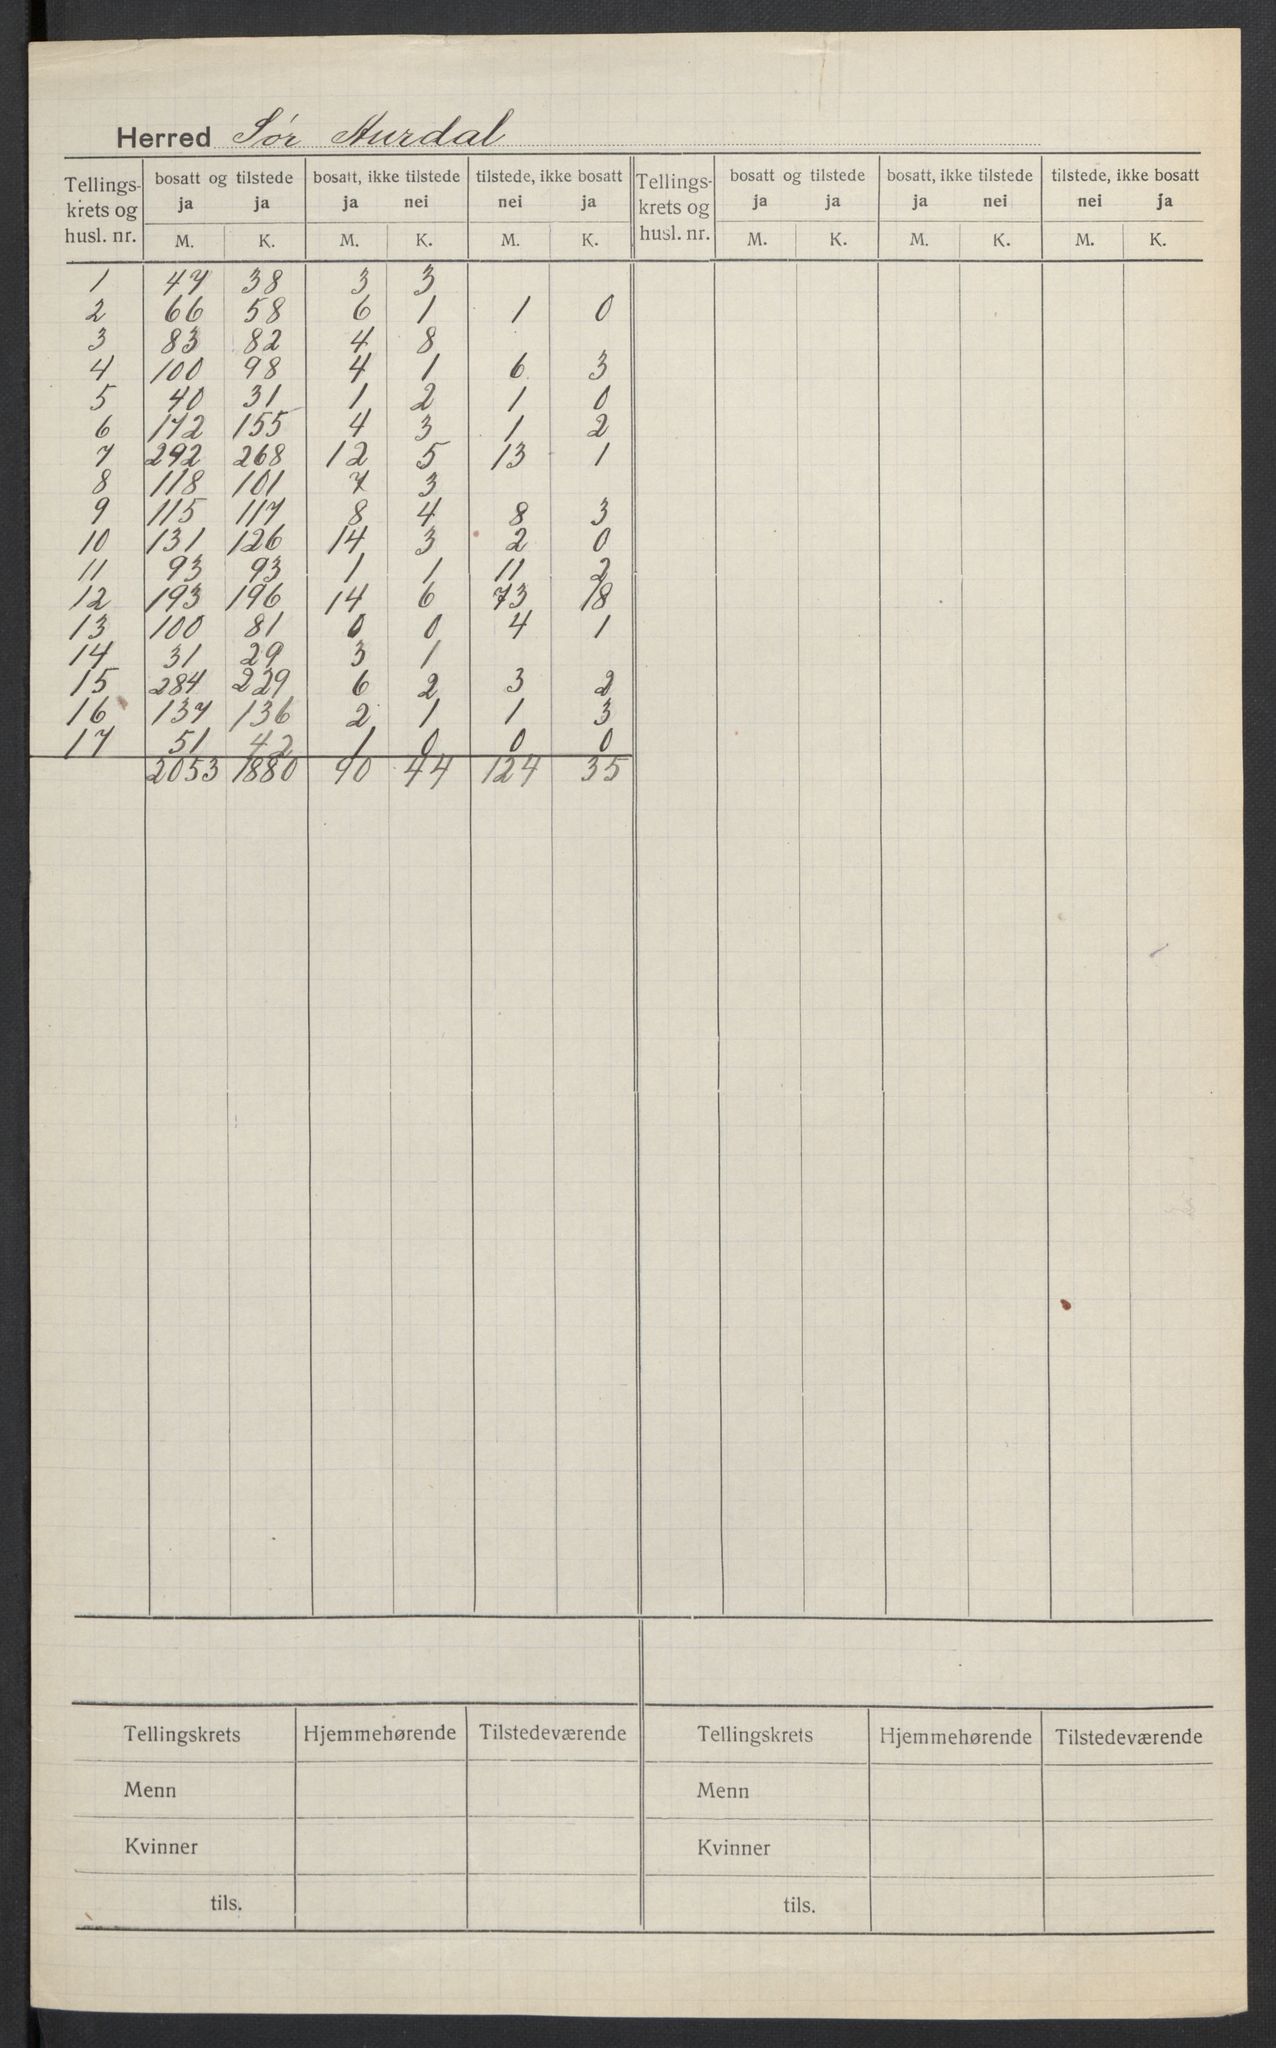 Herred Sør Aurdal
Tellings- bosatt og tilstede bosatt, ikke tilstede tilstede, ikke bosatt Tellings- bosatt og tilstede bosatt, ikke tilstede tilstede, ikke bosatt
krets og ja ja ja nei nei ja krets og ja ja ja nei nei ja
husl. nr. M. K. M. K. M. K. husl. nr. M. K. M. K. M. K.
1 47 38 3 3
2 66 58 6 1 1 0
3 83 82 4 8
4 100 98 4 1 6 3
5 40 31 1 2 1 0
6 172 155 4 3 1 2
7 292 268 12 5 13 1
8 118 101 7 3
9 115 117 8 4 8 3
10 131 126 14 3 2 0
11 93 93 1 1 11 2
12 193 196 14 6 73 18
13 100 81 0 0 4 1
14 31 29 3 1
15 284 229 6 2 3 2
16 137 136 2 1 1 3
17 51 42 1 0 0 0
2053 1880 90 44 124 35
Tellingskrets Hjemmehørende Tilstedeværende Tellingskrets Hjemmehørende Tilstedeværende
Menn Menn
Kvinner Kvinner
tils. tils.